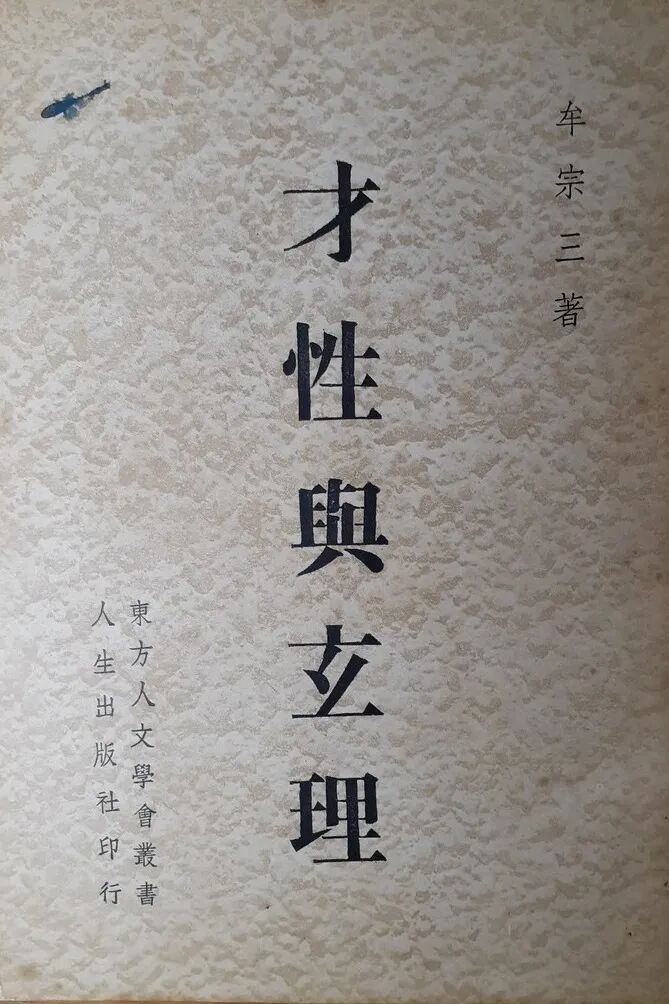 牟宗三著
才性與玄理
東方人文學會叢書
人生出版社印行